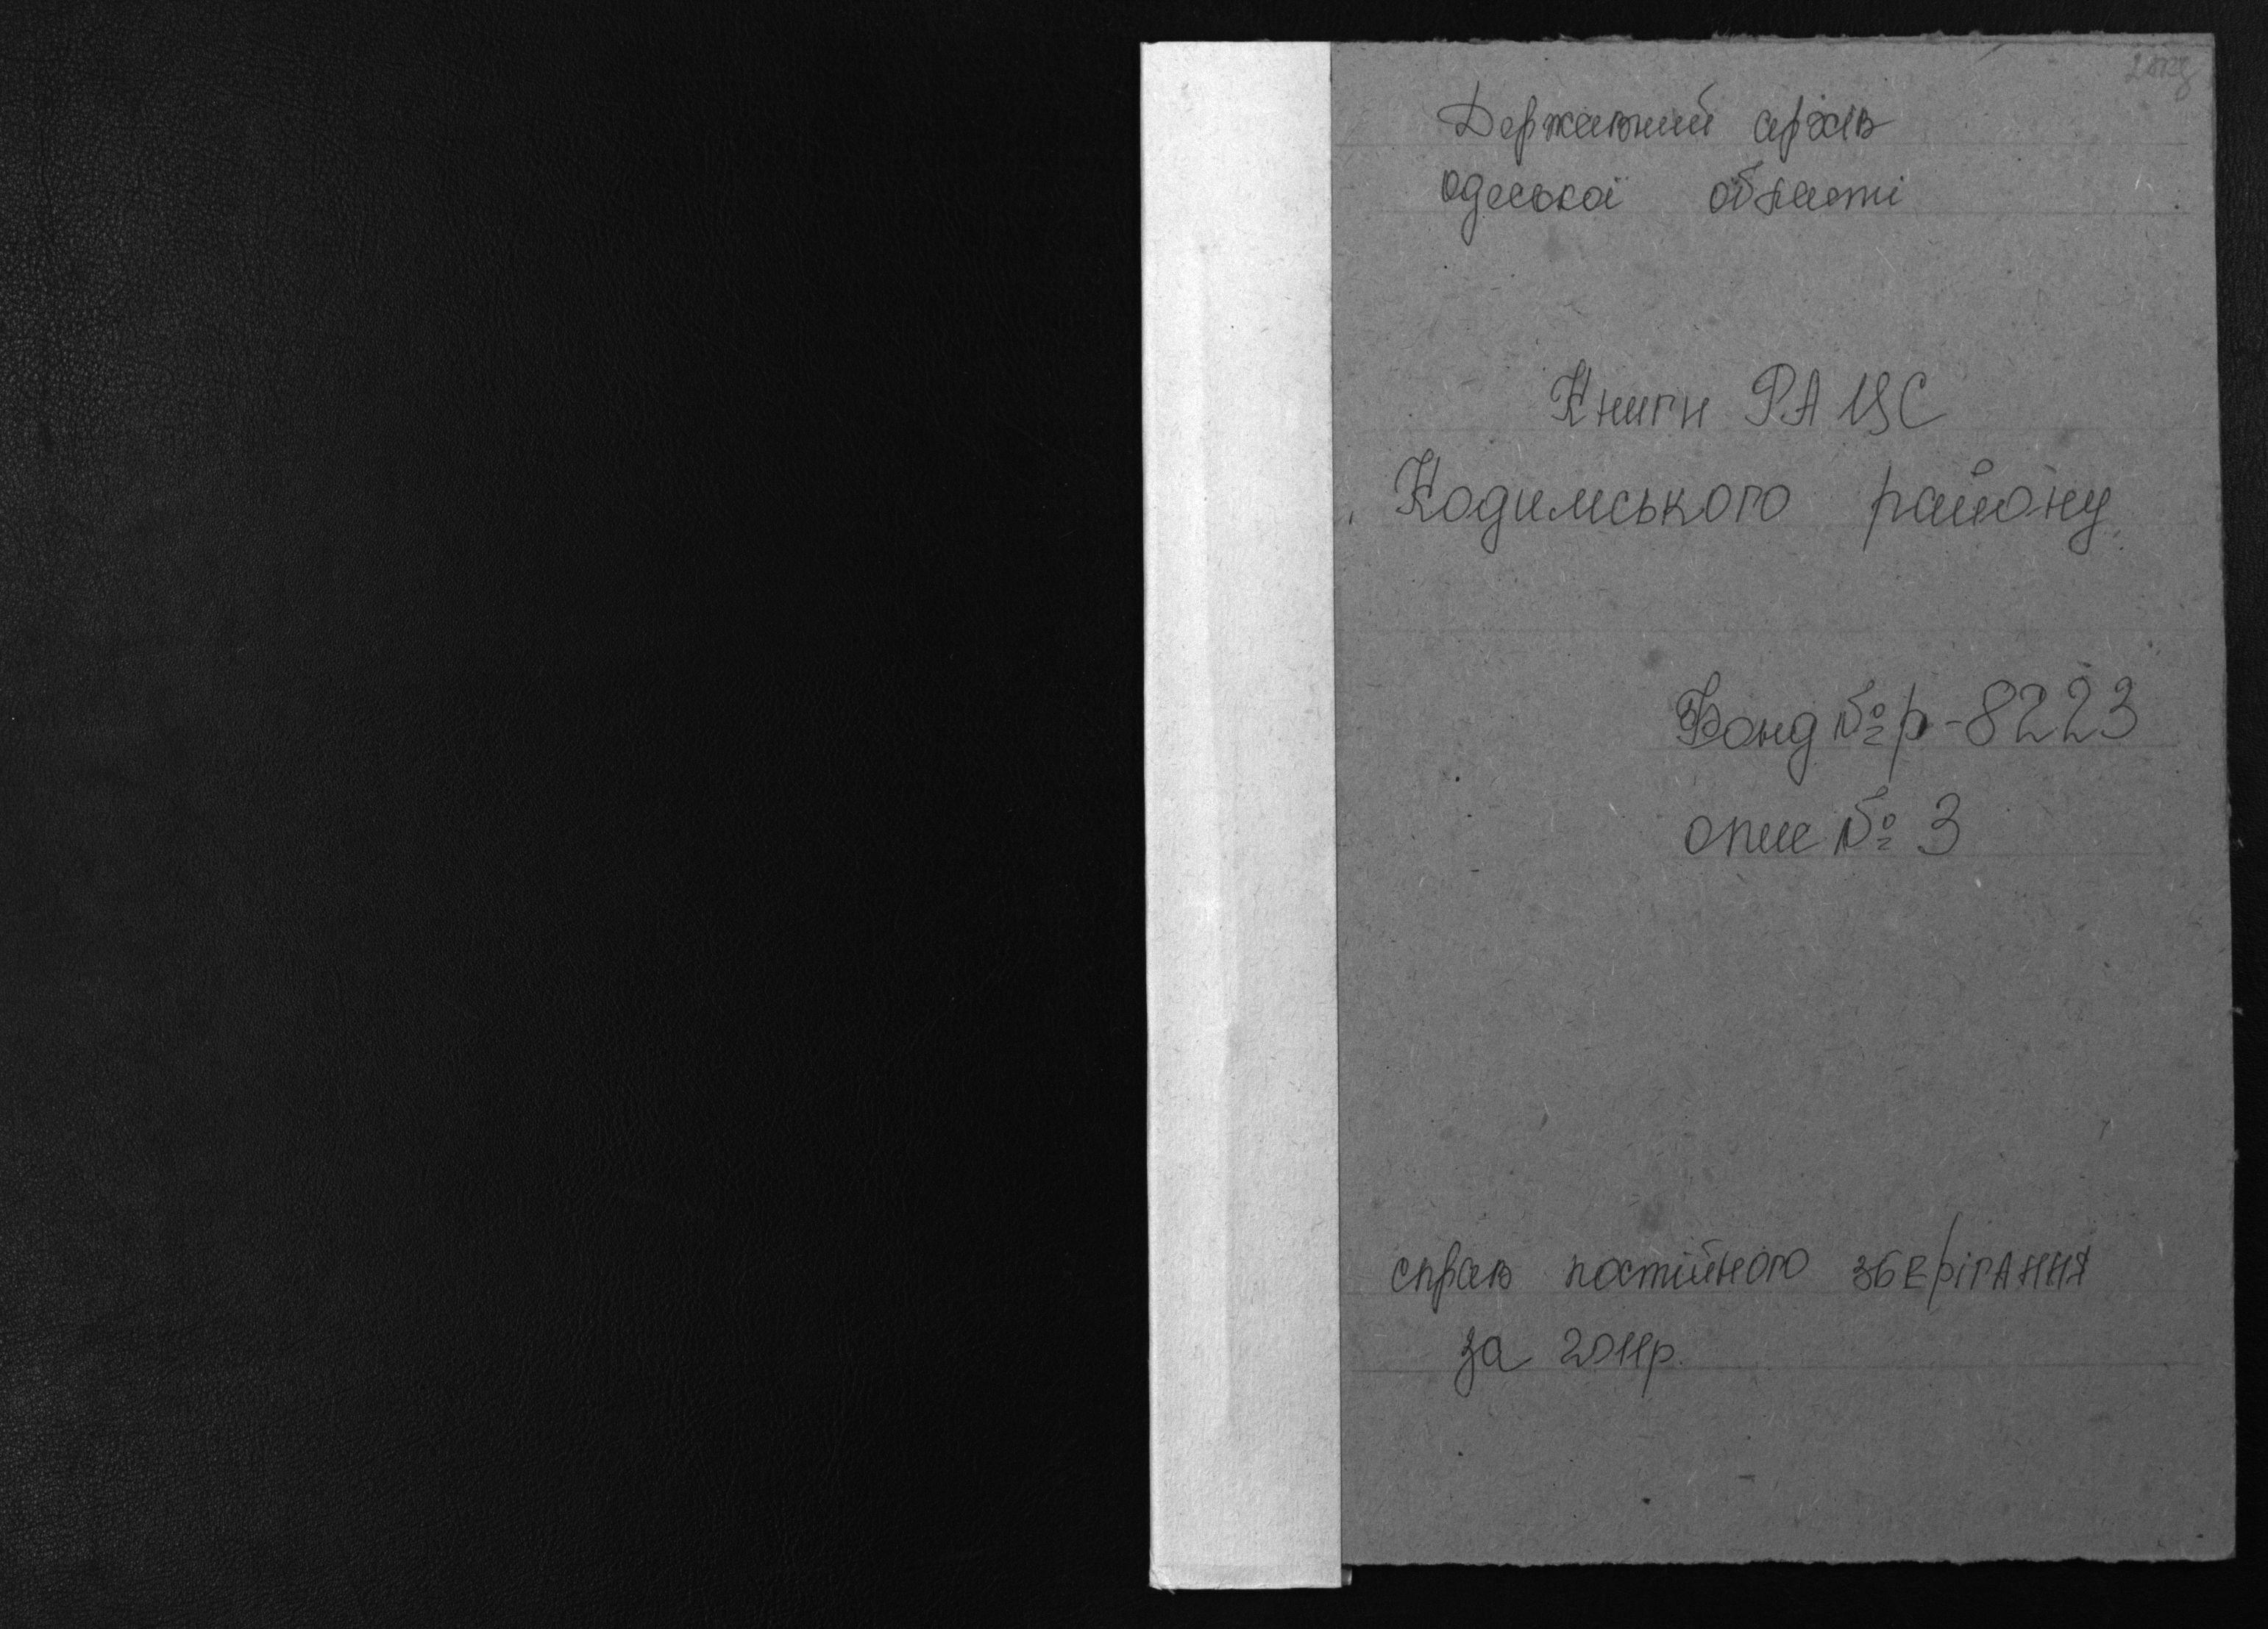 Державний архів
одеської області
Книги РАЦС
Кодимського району
Фонд № р-8223
опис № 3
справ постійного зберігання
за 2011р.